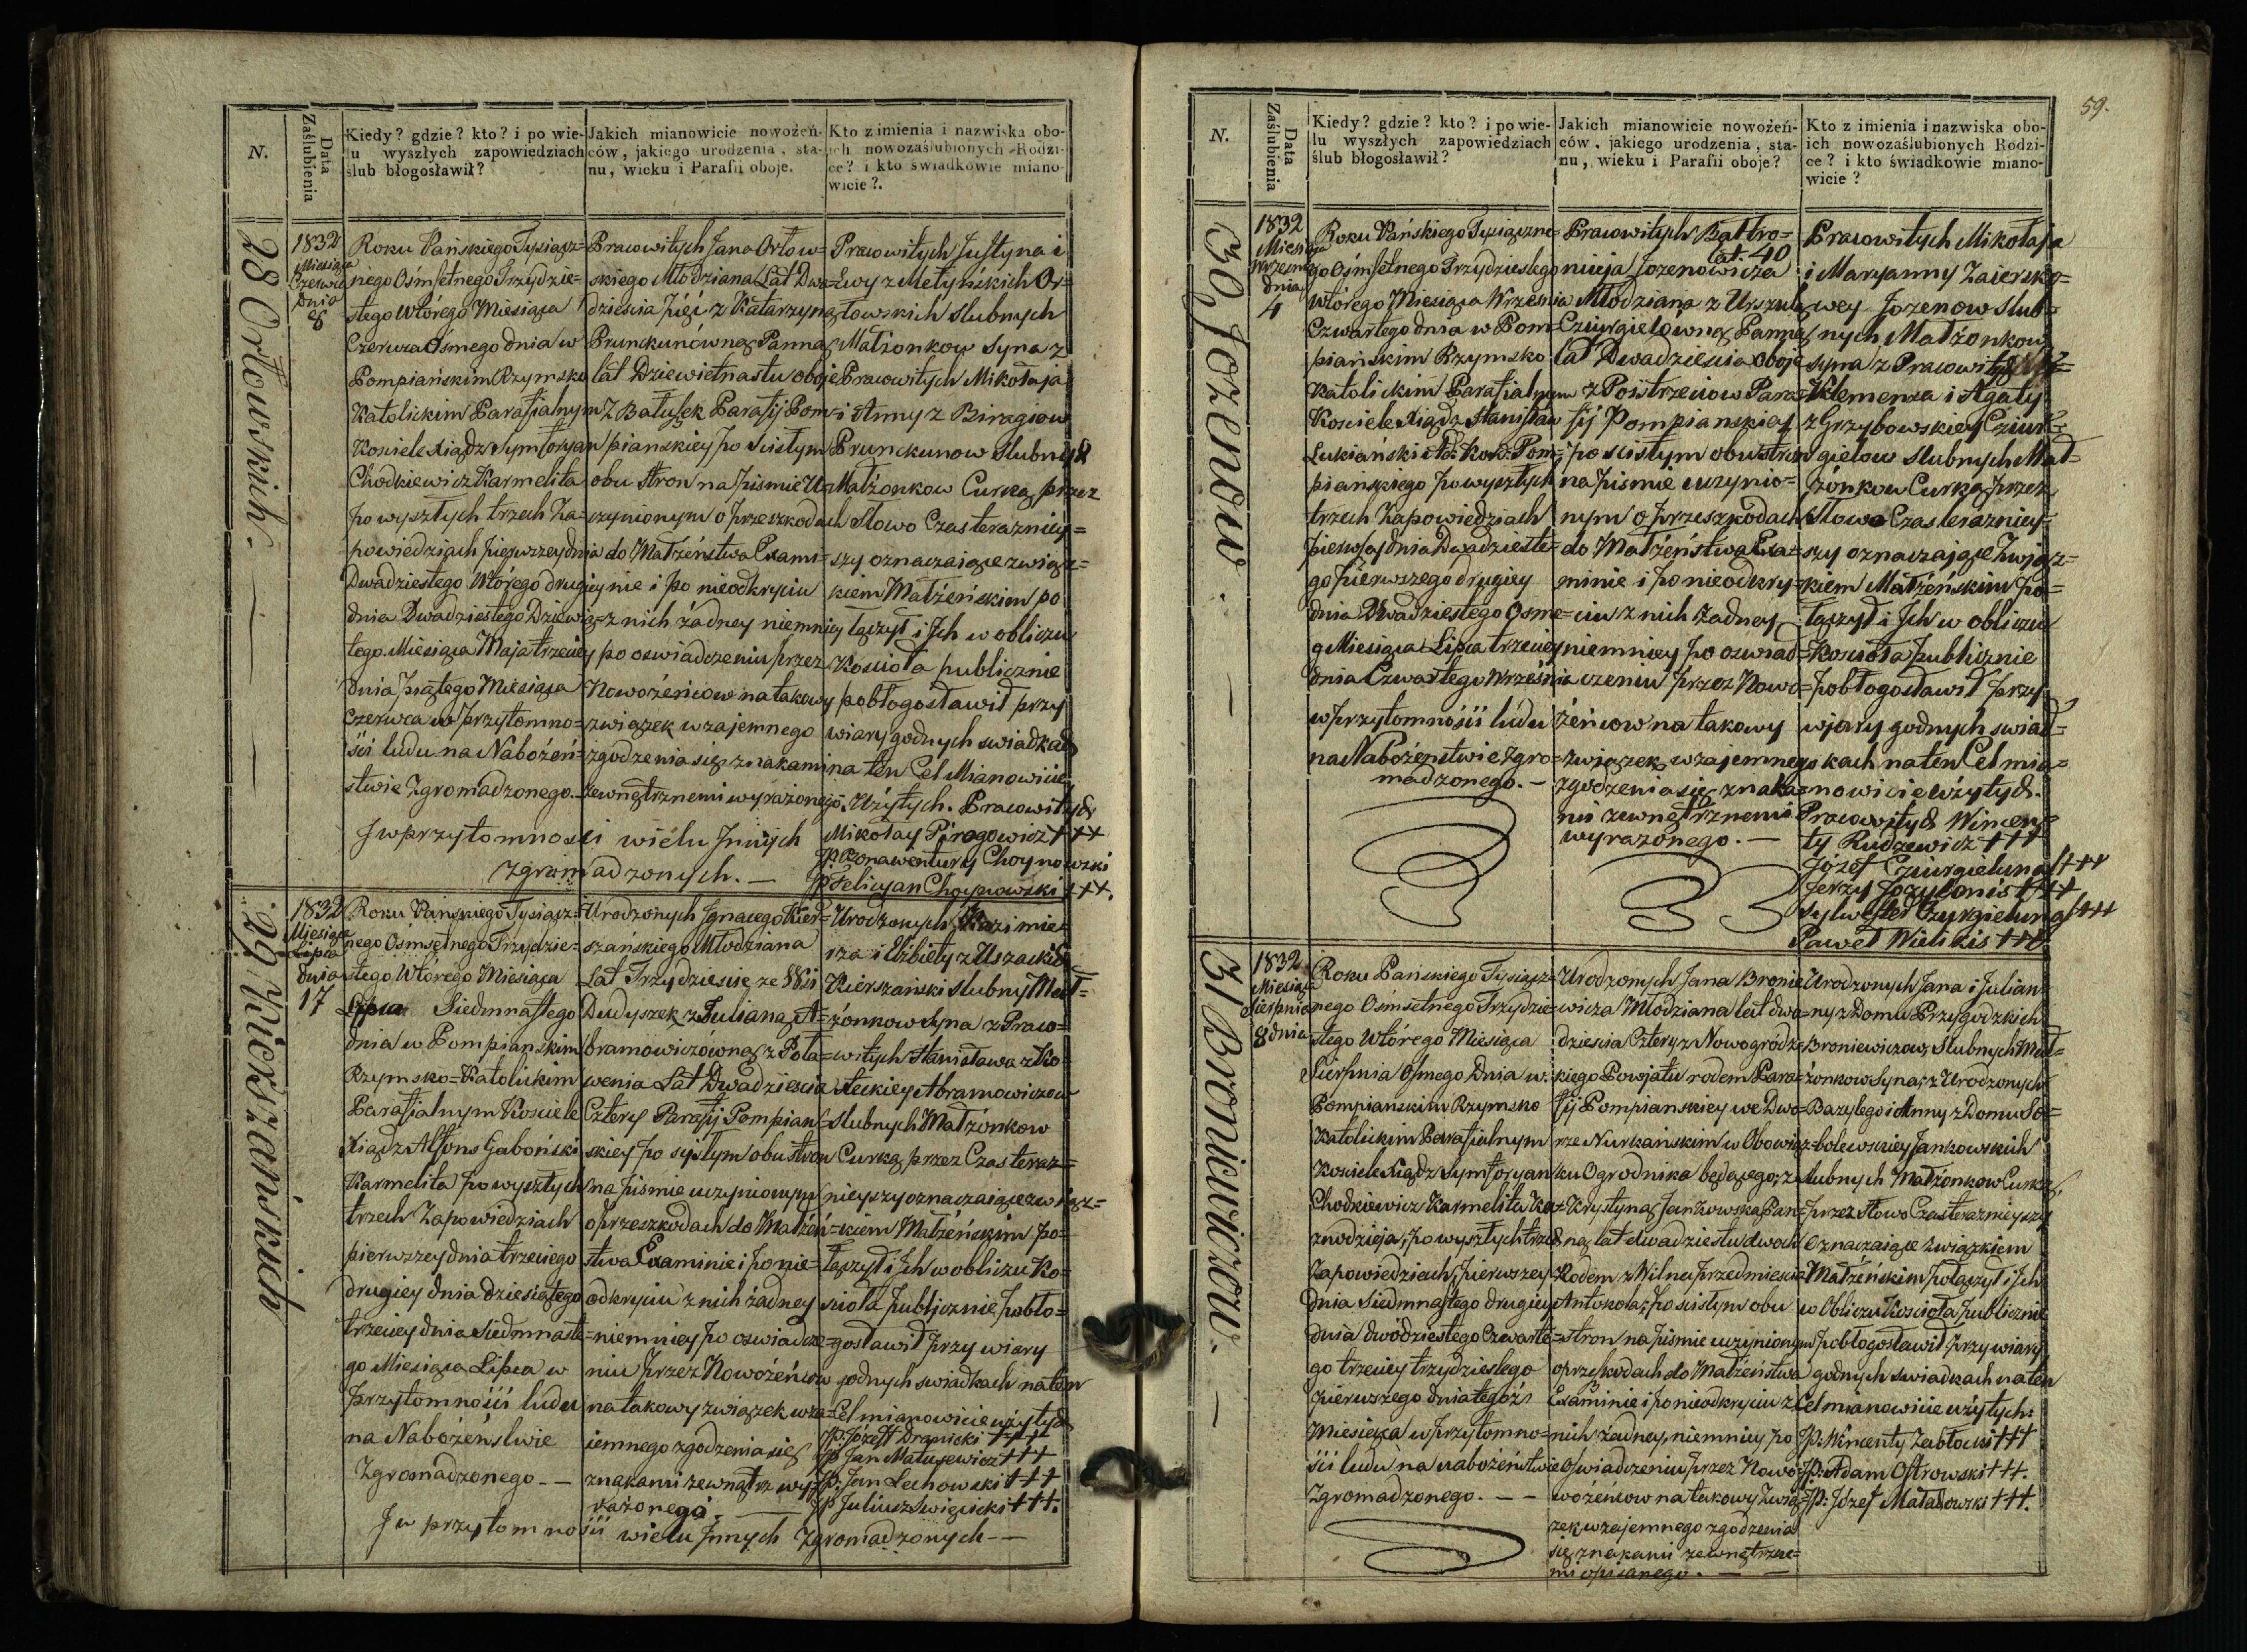 N.
Data
Zaślubienia
Kiedy? gdzie? kto? i po wie-
lu wyszłych zapowiedziach
ślub błogosławił?
Jakich mianowicie nowożeń-
ców, jakiego urodzenia, sta-
nu, wieku i Parafii oboje.
Kto z imienia i nazwiska obo-
ich nowozaślubionych Rodzi-
ce? i kto świadkowie miano-
wicie?.
28 Orłowskich.
1832
Miesiąca
Czerwca
dnia
8
Roku Pańskiego Tysiącz=
nego Ośmsetnego Trzydzie=
stego Wtórego Miesiąca
Czerwca Osmego dnia w
Pompiańskim Rzymsko
Katolickim Parafialnym
Kosciele Xiądz Symforyan
Chodkiewicz Karmelita
po wyszłych trzech Za=
powiedziach pierwszey dnia
Dwadziestego Wtórego drugiey
dnia Dwadziestego Dziewią=
tego Miesiąca Maja trzeciey
dnia piątego Miesiąca
Czerwca w przytomno=
ści ludu na Nabożeń=
stwie Zgromadzonego.
Pracowitych Jana Orłow=
skiego Młodziana Lat Dwa=
dziescia pięć z Katarzyną
Prunckunówną Panną
lat Dziewietnastu oboje
Z Batusek Parafij Pom=
pianskiey po scisłym
obu stron na pismie U=
czynionym o przeszkodach
do Małżeństwa Exami=
nie i po nieodkryciu
z nich żadney niemniey
po oswiadczeniu przez
Nowożeńcow na takowy
związek wzajemnego
zgodzenia się znakami
zewnętrznemi wyrażonego.
Pracowitych Justyna i
Ewy z Metyńskich Or=
łowskich slubnych
Małżonkow Syna z
Pracowitych Mikołaja
i Anny z Biragiow
Prunckunow Slubnych
Małżonkow Curką przez
Słowo Czas terazniey=
szy oznaczaiące związ=
kiem Małżeńskim po
łączył i Ich w obliczu
Kosciola publicznie
pobłogosławił przy
wiary godnych swiadkach
na ten Cel Mianowicie
Użytych. Pracowitych
Mikołay Pirogowicz +++
JP. Bonawentury Choynowski
JP Felicyan Choynowski +++.
I w przytomnosci wielu Innych
zgromadzonych. —
29 Kierszańskich
1832
Miesiąca
Lipca
dnia
17
Roku Pańskiego Tysiącz=
nego Osmsetnego Trzydzie=
stego Wtórego Miesiąca
Lipca Siedmnastego
dnia w Pompiańskim
Rzymsko=Katolickim
Parafialnym Kosciele
Xiądz Alfons Gaboński
Karmelita po wyszłych
trzech Zapowiedziach
pierwszey dnia trzeciego
drugiey dnia dziesiątego
trzeciey dnia siedmnaste=
go Miesiąca Lipca w
przytomności ludu
na Nabożeństwie
Zgromadzonego. —
Urodzonych Ignacego Kier=
szańskiego Młodziana
Lat Trzydziescie ze Wsi
Dudyszek z Julianą A=
bramowiczowną z Poła=
wenia Lat Dwadziescia
Cztery Parafij Pompian=
skiey po scisłym obu stron
na pismie uczynionym
o przeszkodach do Małżeń=
stwa Examinie i po nie=
odkryciu z nich żadney
niemniey po oswiadcze=
niu przez Nowożeńcow
na takowy związek wza=
iemnego zgodzenia się
znakami zewnątrz wy=
rażonego.
Urodzonych Kazimie=
rza i Elżbiety z Uszackich
Kierszański slubny Mał=
żonkow Syna z Praco=
witych Stanisława z Ko=
steckiey Abramowiczow
Slubnych Małżonkow
Curką przez Czas teraz=
nieyszy oznaczaiące związ=
kiem Małżeńskim po=
łączył i Ich w obliczu Ko=
sciola publicznie pobło=
gosławił przy wiary
godnych swiadkach na ten
Cel mianowicie użytych
JP: Józeff Dranicki +++
JP Jan Matusewicz +++
JP: Jan Lechowski +++
JP Juliusz Swięcicki +++.
I w przytomności wielu Innych Zgromadzonych —
59.
N.
Data
Zaślubienia
Kiedy? gdzie? kto? i po wie-
lu wyszłych zapowiedziach
ślub błogosławił?
Jakich mianowicie nowożeń-
ców, jakiego urodzenia, sta-
nu, wieku i Parafii oboje?
Kto z imienia i nazwiska obo-
ich nowozaślubionych Rodzi-
ce? i kto świadkowie miano-
wicie?
30 Jozenow.
1832
Miesiąca
Wrzesnia
dnia
4
Roku Pańskiego Tysiączne=
go Ośmsetnego Trzydziestego
wtórego Miesiąca Wrzesnia
Czwartego dnia w Pom=
piańskim Rzymsko
Katolickim Parafialnym
Kosciele Xiądz Stanisław
Łukiański Pom=
piańskiego po wyszłych
trzech Zapowiedziach
pierwszey dnia Dwadzieste=
go pierwszego drugiey
dnia Dwadziestego Osme=
go Miesiąca Lipca trzeciey
dnia Czwartego Wrzesnia
w przytomności ludu
na Nabożenstwie Zgro=
madzonego. —
Pracowitych Baltro=
lat. 40
mieja Jozenowicza
Młodziana z Urszulą
Cziurgielowną Panną
lat Dwadziescia oboje
z Postrzeciow Para=
fij Pompianskiey
po scisłym obu stron
na pismie uczynio=
nym o przeszkodach
do Małżeństwa Exa=
minie i po nieodkry=
ciu z nich żadney
niemniey po oswiad=
czeniu przez Nowo=
żeńcow na takowy
związek wzajemnego
zgodzenia się znaka=
mi zewnętrznemi
wyrażonego. —
Pracowitych Mikołaja
i Maryanny Zaiersko=
wey Jozenow Slub=
nych Małżonkow
syna z Pracowitych
Klemensa i Agaty
z Grzybowskiey Cziur=
gielow Slubnych Mał=
żonkow Curką przez
Słowo Czas terazniey=
szy oznaczające Związ=
kiem Małżeńskim po=
łączył i Ich w obliczu
Kosciola publicznie
pobłogosławił przy
wiary godnych swiad=
kach na ten Cel mia=
nowicie użytych.
Pracowitych Wincen=
ty Rudzewicz +++
Józef Cziurgielunas +++
Jerzy Jozulonis +++
Sylwester Czyrgielunas +++
Paweł Wielikis +++
31 Broniewiczow.
1832
Miesiąca
Sierpnia
8 dnia
Roku Pańskiego Tysiącz=
nego Osmsetnego Trzydzie=
stego Wtórego Miesiąca
Sierpnia Osmego Dnia w.
Pompianskim Rzymsko
Katolickim Parafialnym
Kosciele Xiądz Symforyan
Chodkiewicz Karmelita Ka=
znodzieja, po wyszłych trzech
Zapowiedziach, pierwszey
dnia Siedmnastego drugiey
dnia dwódziestego Czwarte=
go trzeciey trzydziestego
pierwszego dnia tegoż
Miesieca w przytomno=
ści ludu na nabożeństwie
Zgromadzonego. — —
Urodzonych Jana Bronie
wicza Młodziana lat dwa=
dziescia Cztery z Nowogródz=
kiego Powjatu rodem Para=
fij Pompianskiey we Dwo=
rze Nurkańskim w Obowiąz=
ku Ogrodnika będącego, z
Krystyną Jankowską Pan=
ną lat dwadziestu dwoch
Rodem z Wilna przedmiescia
Antokola, po scisłym obu
stron na pismie uczynionym
o przeszkodach do Małżeństwa
Examinie i po nieodkryciu z
nich żadney, niemniey po
oswiadczeniu przez Nowo
wożeńcow na takowy Zwią=
zek wzajemnego zgodzenia
się znakami zewnętrzne=
mi opisanego. —
Urodzonych Jana i Julian
ny z Domu Przygodzkich
Broniewiczow, Slubnych Mał=
żonkow Syna, z Urodzonych
Bazylego i Anny z Domu So=
bolewskiey Jankowskich
slubnych Małżonkow Curką,
przez słowo Czas teraznieyszy
oznaczaiące Związkiem
Małżeńskim połączył i Ich
w Obliczu Kosciola publicznie
pobłogosławił przy wiary
godnych swiadkach na ten
Cel mianowicie użytych:
JP: Wincenty Zabłocki +++
JP: Adam Ostrowski +++.
JP: Józef Matadowski +++.